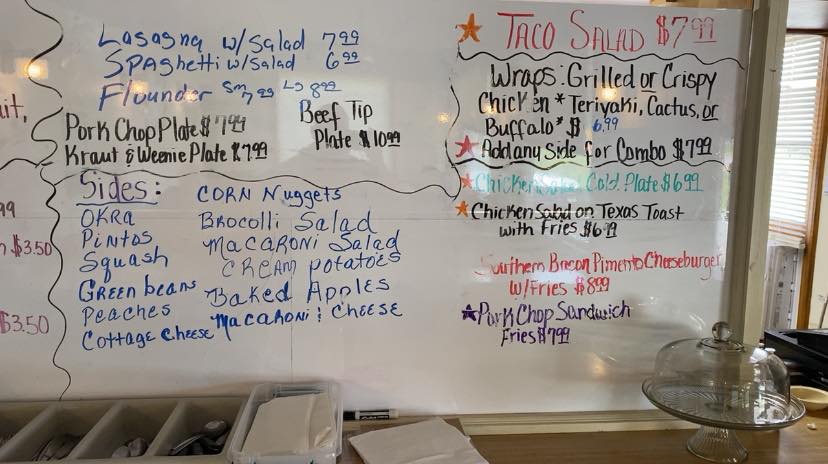 Lasagna w/Salad 7.99
Spaghetti w/Salad 6.99
Flounder Sm 7.99 Lg 8.99
Pork Chop Plate $7.99
Kraut & Weenie Plate $7.99
Beef Tip
Plate $10.99
Sides:
Okra
Pintos
Squash
Green beans
Peaches
Cottage Cheese
Corn Nuggets
Brocolli Salad
Macaroni Salad
Cream potatoes
Baked Apples
Macaroni & Cheese
Taco Salad $7.99
Wraps: Grilled or Crispy
Chicken * Teriyaki, Cactus, or
Buffalo * $ 6.99
Add any Side for Combo $7.99
Chicken Salad Cold Plate $6.99
Chicken Salad on Texas Toast
with Fries $6.99
Southern Bacon Pimento Cheeseburger
w/Fries $8.99
Pork Chop Sandwich
Fries $7.99
$3.50
$3.50